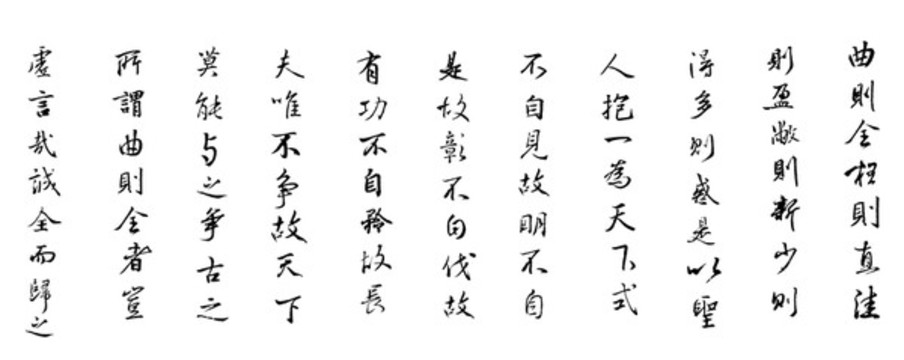 曲則全枉則直洼
則盈敝則新少則
得多則惑是以聖
人抱一為天下式
不自見故明不自
是故彰不自伐故
有功不自矜故長
夫唯不争故天下
莫能与之争古之
所謂曲則全者豈
虛言哉誠全而歸之